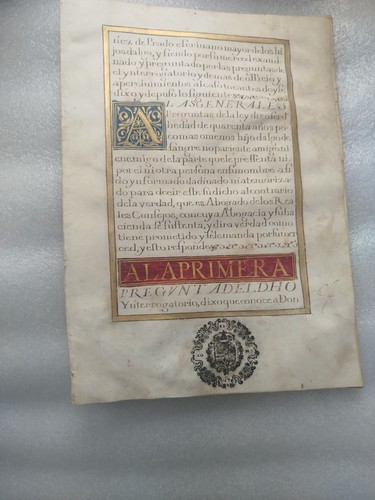 ñez de Prado escriuano mayor de los hi
jos dalgo, y siendo por su merced exami
nado y preguntado por las preguntas de
el ynterrogatorio y demas de oficio y
apercimientos
dixo y depuso lo siguiente
A LAS GENERALES
Preguntas de la ley dixo ser
de hedad de quarenta años po
co mas o menos hijo dalgo de
sangre no pariente amigo ni
enemigo de la parte que le presenta ni
por el ni otra persona en su nombre a si
do ynformado dadiuado ni atemoriza
do para decir este su dicho al contrario
de la verdad, que es Abogado de los Rea
les Consejos, con cuya Abogacia y su ha
cienda se sustenta, y dira verdad como
tiene prometido y se le manda por su mer
ced, y esto responde
A LA PRIMERA
PREGVNTA DEL DHO
Ynterrogatorio, dixo que conoce a Don